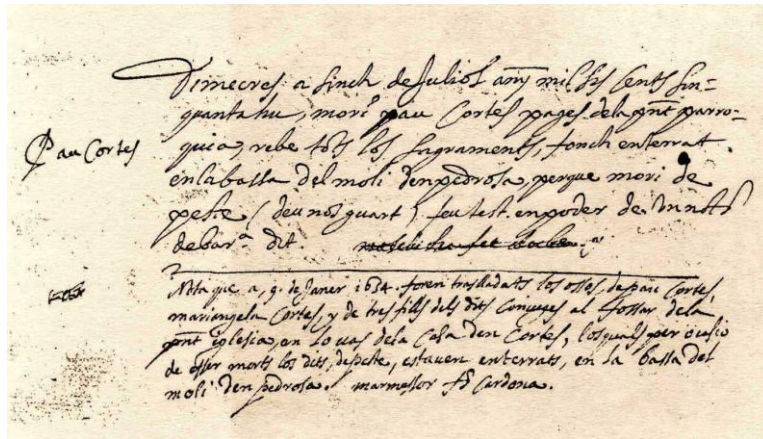 Dimecres a sinch de Juliol any mil sis Cents sin=
quanta hu, mori pau Cortes pages dela pnt parro-
Pau Cortes
quia, rebe tots los sagraments, fonch enterrat
en la bassa del moli den pedrosa, perque mori de
peste (deu nos guart) feu test. en poder de
de bar.ª dit.
Nota que a 9. de Janer 1654. foren traslladats los ossos, de pau Cortes,
mariangela Cortes, y de tres fills dels dits Conjuges al fossar dela
pnt iglesia, en lo vas dela Casa den Cortes, los quals per ocasio
de esser morts los dits, de peste, estaven enterrats, en la bassa del
moli den pedrosa. marmessor fr. Cardona.